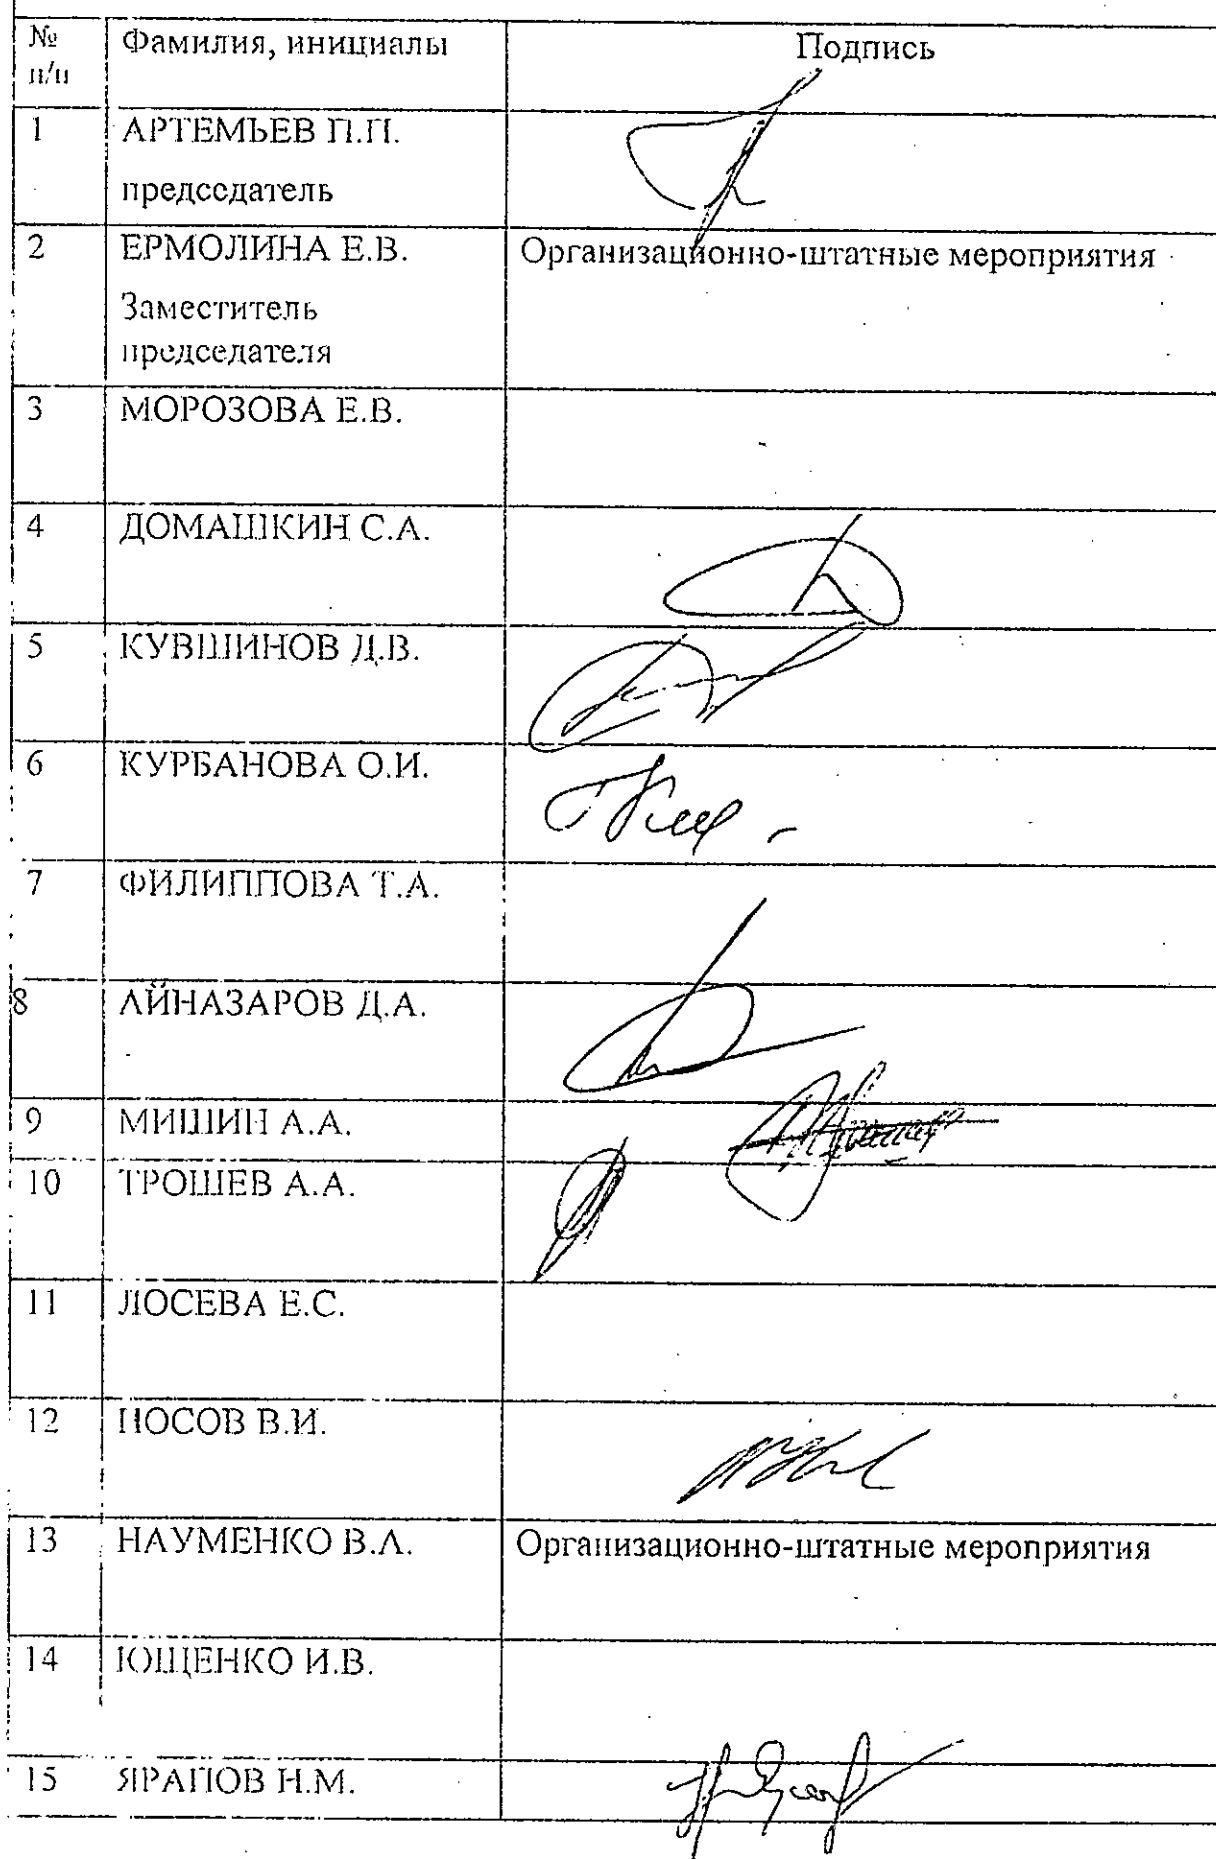 № Фамилия, инициалы Подпись
п/п
1 АРТЕМЬЕВ П.П.
председатель
2 ЕРМОЛИНА Е.В. Организационно-штатные мероприятия
Заместитель
председателя
3 МОРОЗОВА Е.В.
4 ДОМАШКИН С.А.
5 КУВШИНОВ Д.В.
6 КУРБАНОВА О.И.
7 ФИЛИППОВА Т.А.
8 АЙНАЗАРОВ Д.А.
9 МИШИН А.А.
10 ТРОШЕВ А.А.
11 ЛОСЕВА Е.С.
12 НОСОВ В.И.
13 НАУМЕНКО В.А. Организационно-штатные мероприятия
14 ЮЩЕНКО И.В.
15 ЯРАПОВ Н.М.